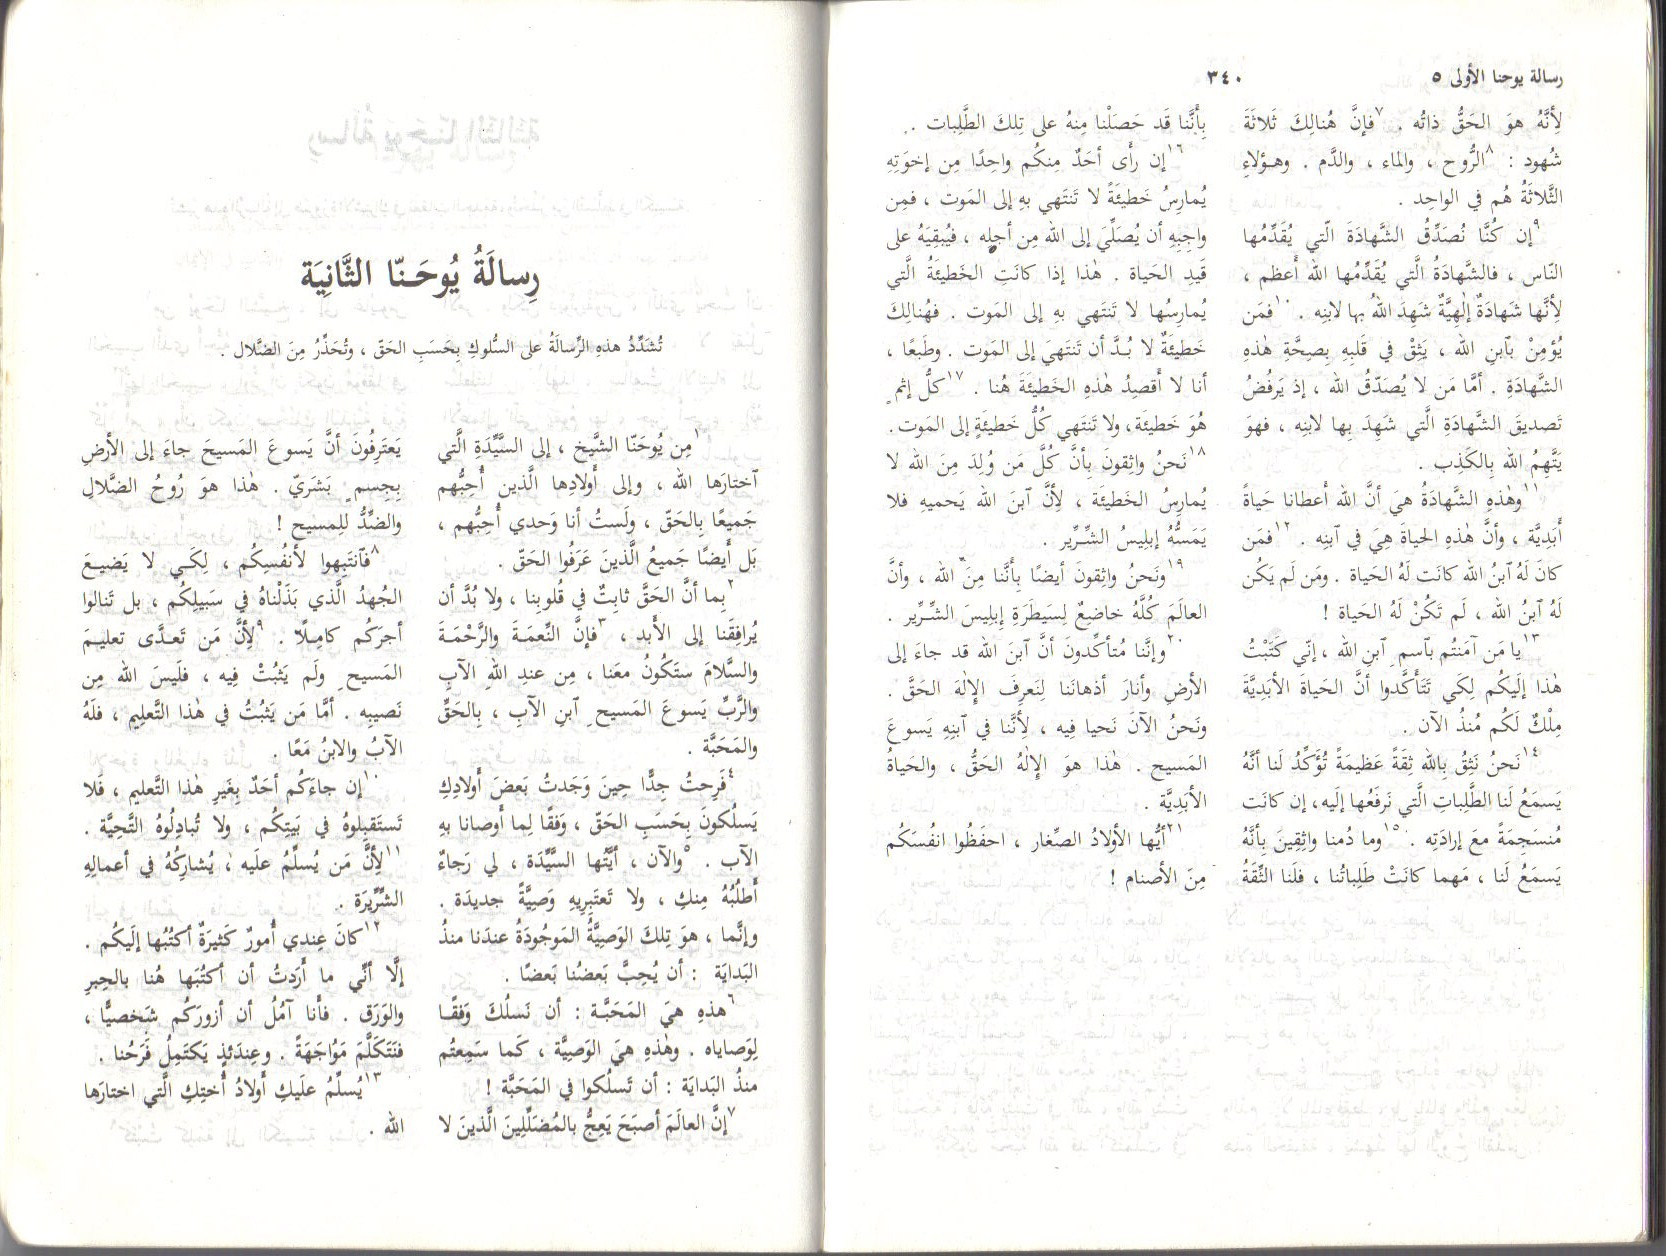 رسالة يوحنا الأولى ٥
٣٤٠
لِأَنَّهُ هوَ الحَقُّ ذاتُه . ٧فإنَّ هُنالِكَ ثَلاثَةَ
شُهود : ٨الرُّوح ، والماء ، والدَّم . وهـؤلاءِ
الثَّلاثَةُ هُم في الواحِد .
٩إن كُنَّا نُصَدِّقُ الشَّهادَةَ الّتي يُقَدِّمُها
النّاس ، فالشَّهادَةُ الَّتي يُقَدِّمُها الله أعظم ،
لِأَنَّها شَهادَةٌ إلٰهِيَّةٌ شَهِدَ اللهُ بها لابنِه . ١٠فمَن
يُؤمِنْ بٱبنِ الله ، يَثِقْ في قَلبِهِ بِصِحَّةِ هٰذهِ
الشَّهادَةِ . أمَّا مَن لا يُصَدِّقُ الله ، إذ يَرفُضُ
تَصديقَ الشَّهادَةِ الَّتي شَهِدَ بِها لابنِه ، فهوَ
يَتَّهِمُ الله بِالكَذِب .
١١وهٰذهِ الشَّهادَةُ هيَ أنَّ الله أعطانا حَياةً
أبَدِيَّة ، وأنَّ هٰذهِ الحياةَ هِيَ في ٱبنِه . ١٢فمَن
كانَ لَهُ ٱبنُ الله كانَت لَهُ الحَياة . ومَن لَم يَكُن
لَهُ ٱبنُ الله ، لَم تَكُنْ لَهُ الحَياة !
١٣يا مَن آمَنتُم بٱسمِ ٱبنِ الله ، إنّي كَتَبْتُ
هٰذا إلَيكُم لِكَي تَتَأكَّدوا أنَّ الحَياةَ الأبَدِيَّةَ
مِلْكٌ لَكُم مُنذُ الآن .
١٤نَحنُ نَثِقُ بِالله ثِقَةً عَظيمَةً تُؤَكِّدُ لَنا أنَّهُ
يَسمَعُ لَنا الطَّلِباتِ الَّتي نَرفَعُها إلَيه، إن كانَت
مُنسَجِمَةً معَ إرادَتِه . ١٥وما دُمنا واثِقِينَ بِأنَّهُ
يَسمَعُ لَنا ، مَهما كانَتْ طَلِباتُنا ، فَلَنا الثِّقَةُ
بِأنَّنا قَد حَصَلْنا مِنهُ على تِلكَ الطَّلِبات .
١٦إن رأى أحَدٌ مِنكُم واحِدًا مِن إخوَتِهِ
يُمارِسُ خَطيئَةً لا تَنتَهي بهِ إلى المَوت ، فمِن
واجِبِهِ أن يُصَلِّيَ إلى الله مِن أجلِه ، فيُبقِيَهُ على
قَيدِ الحَياة . هٰذا إذا كانَت الخَطيئَةُ الَّتي
يُمارِسُها لا تَنتَهي بهِ إلى المَوت . فهُنالِكَ
خَطيئَةٌ لا بُـدَّ أن تَنتَهيَ إلى المَوت . وطَبعًا ،
أنا لا أقصِدُ هٰذهِ الخَطيئَةَ هُنا . ١٧كلُّ إثمٍ
هُوَ خَطيئَة، ولا تَنتَهي كُلُّ خَطيئَةٍ إلى المَوت.
١٨نَحنُ واثِقونَ بِأنَّ كُلَّ مَن وُلِدَ مِنَ الله لا
يُمارِسُ الخَطيئَة ، لِأنَّ ٱبنَ الله يَحميهِ فلا
يَمَسُّهُ إبليسُ الشِّرِّير .
١٩ونَحنُ واثِقونَ أيضًا بِأنَّنا مِنَ الله ، وأنَّ
العالَمَ كُلَّهُ خاضِعٌ لِسيَطَرَةِ إبليسَ الشِّرِّير .
٢٠وإنَّنا مُتأكِّدونَ أنَّ ٱبنَ الله قد جاءَ إلى
الأرضِ وأنارَ أذهانَنا لِنَعرِفَ الإلٰهَ الحَقَّ .
ونَحنُ الآنَ نَحيا فِيه ، لِأنَّنا في ٱبنِهِ يَسوعَ
المَسيح . هٰذا هوَ الإلٰهُ الحَقُّ ، والحَياةُ
الأبَدِيَّة .
٢١أيُّها الأولادُ الصِّغار ، احفَظُوا انفُسَكُم
مِنَ الأصنام !
رِسالَةُ يُوحَـنّا الثَّانِيَة
تُشَدِّدُ هذهِ الرِّسالَةُ على السُّلوكِ بِحَسَبِ الحَقّ ، وتُحَذِّرُ مِنَ الضَّلال .
١مِن يُوحَنّا الشَّيخ ، إلى السَّيِّدَةِ الَّتي
ٱختارَها الله ، وإلى أولادِها الَّذين أُحِبُّهم
جَميعًا بِالحَقّ ، ولَستُ أنا وَحدي أُحِبُّهم ،
بَل أيضًا جَميعُ الَّذينَ عَرَفُوا الحَقّ .
٢بِما أنَّ الحَقَّ ثابِتٌ في قُلوبِنا ، ولا بُدَّ أن
يُرافِقَنا إلى الأبَد ، ٣فإنَّ النِّعمَـةَ والرَّحْمَـةَ
والسَّلامَ ستَكُونُ معَنا ، مِن عندِ اللهِ الآبِ
والرَّبِّ يَسوعَ المَسيحِ ٱبنِ الآبِ ، بِالحَقِّ
والمَحَبَّة .
٤فَرِحتُ جِدًّا حِينَ وَجَدتُ بَعضَ أولادِكِ
يَسلُكونَ بِحَسَبِ الحَقّ ، وَفقًا لِما أوصانا بهِ
الآب . ٥والآن ، أيَّتُها السَّيِّدَة ، لي رَجاءٌ
أطلُبُهُ مِنكِ ، ولا تَعتَبِرِيهِ وَصِيَّةً جديدَة .
وإنَّما ، هوَ تِلكَ الوَصِيَّةُ المَوجُودَةُ عندَنا منذُ
البَدايَة : أن يُحِبَّ بَعضُنا بَعضًا .
٦هذهِ هيَ المَحَبَّـة : أن نَسلُكَ وَفقًـا
لِوَصاياه . وهٰذهِ هيَ الوَصِيَّة ، كَما سَمِعتُم
منذُ البَدايَة : أن تَسلُكوا في المَحَبَّة !
٧إنَّ العالَمَ أصبَحَ يَعِجُّ بالمُضَلِّلِينَ الَّذينَ لا
يَعتَرِفُونَ أنَّ يَسوعَ المَسيحَ جاءَ إلى الأرضِ
بِجِسمٍ بَشَرِيّ . هٰذا هوَ رُوحُ الضَّلالِ
والضِّدُّ لِلمسيح !
٨فٱنتَبِهوا لأنفُسِكُم ، لِكَـي لا يَضيـعَ
الجُهدُ الَّذي بَذَلْناهُ في سَبيلِكُم ، بل تَنالوا
أجرَكُم كامِـلًا . ٩لِأنَّ مَن تَعـدَّى تعليـمَ
المَسيحِ ولَم يَثبُتْ فِيه ، فلَيسَ الله مِن
نَصيبِه . أمَّا مَن يَثبُتُ في هٰذا التَّعلِيم ، فلَهُ
الآبُ والابنُ مَعًا .
١٠إن جاءَكُم أحَدٌ بِغَيرِ هٰذا التَّعليم ، فَلا
تَستَقبِلوهُ في بَيتِكُم ، ولا تُبادِلُوهُ التَّحِيَّة .
١١لِأنَّ مَن يُسلِّمُ علَيه ، يُشارِكُهُ في أعمالِهِ
الشِّرِّيرَة .
١٢كانَ عِندِي أُمورٌ كَثيرَةٌ أكتُبُها إلَيكُم .
إلَّا أنّي ما أرَدتُ أن أكتُبَها هُنا بالحِبرِ
والوَرَق . فأنا آمُلُ أن أزورَكُم شَخصيًّا ،
فنَتَكَلَّمَ مُواجَهَةً . وعِندَئذٍ يَكتَمِلُ فَرَحُنا .
١٣يُسلِّمُ علَيكِ أولادُ أُختِكِ الَّتي اختارَها
الله .